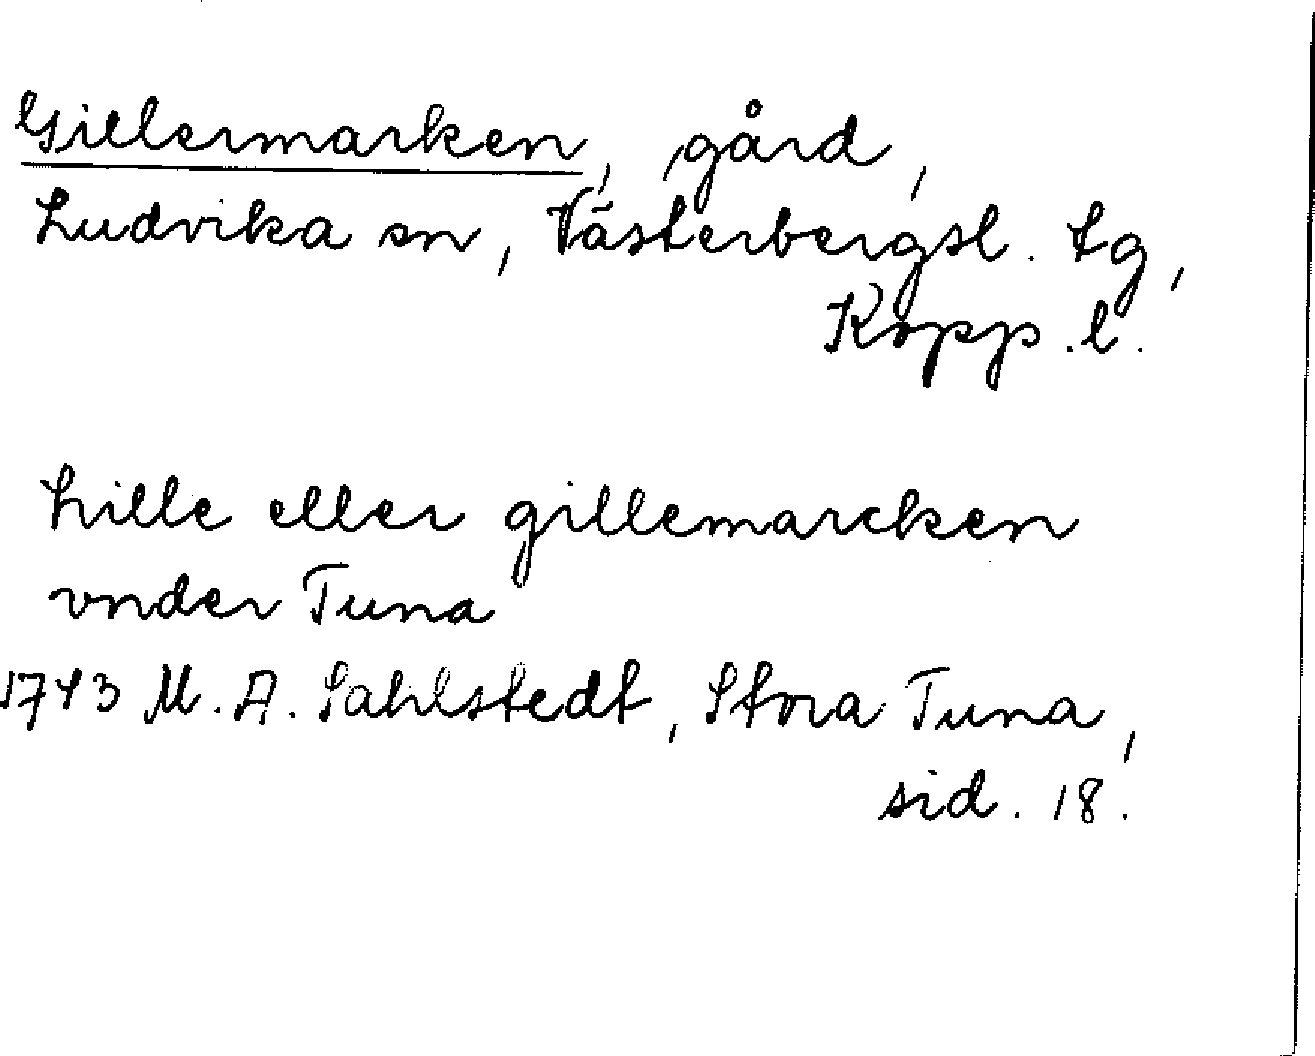 Gillermarken, gård,
Ludvika sn, Västerbergsl. tg,
Kopp. l.
Lille eller gillemarcken
vnder Tuna
1743 M. A. Sahlstedt, Stora Tuna,
sid. 18.